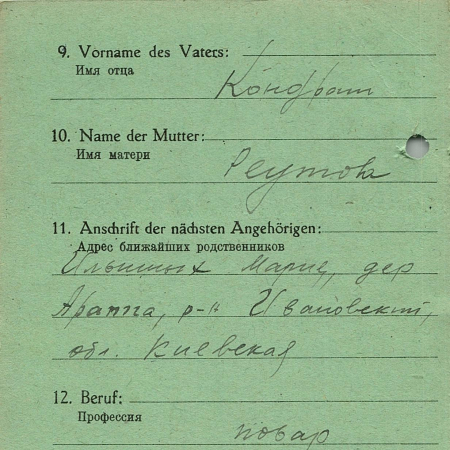 9. Vorname des Vaters:
Имя отца
Кондрат
10. Name der Mutter:
Имя матери
Реутова
11. Anschrift der nächsten Angehörigen:
Адрес ближайших родственников
Марие, дер
р-н Ивановский,
обл. Киевская
12. Beruf:
Профессия
повар